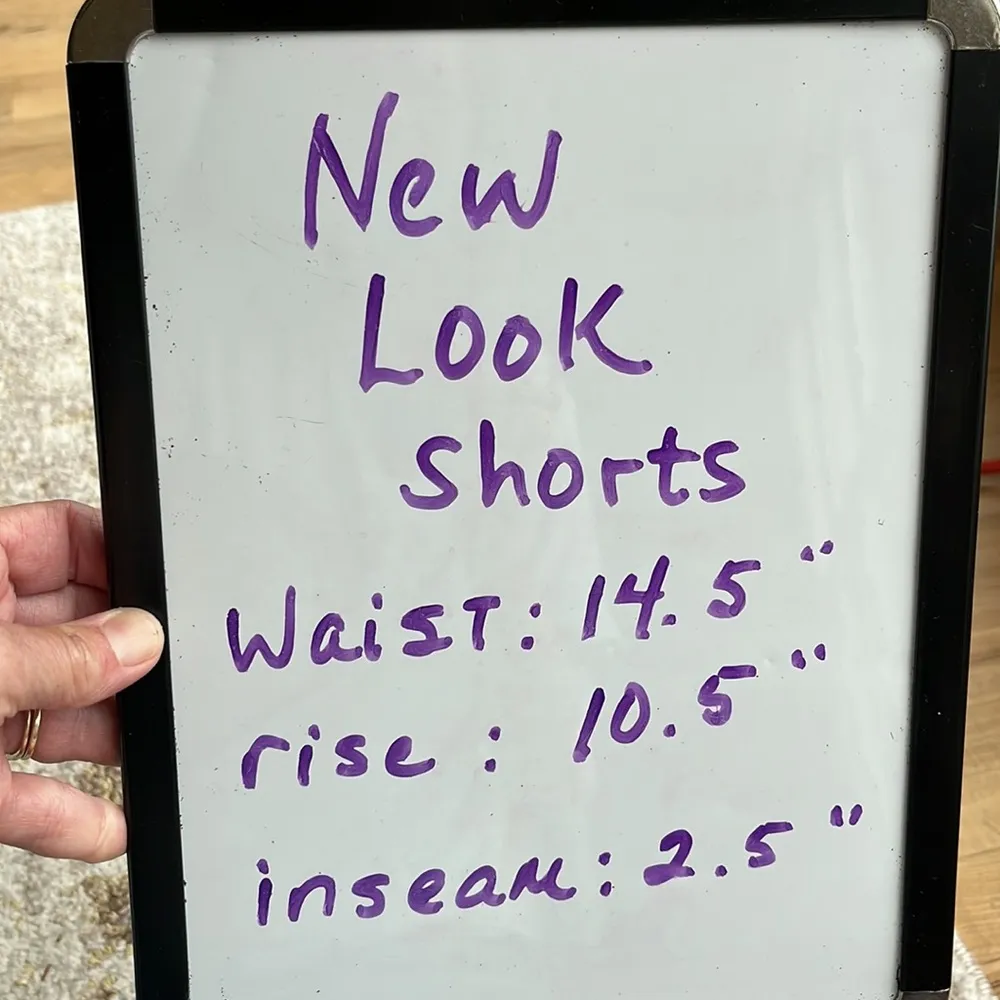 New
Look
shorts
Waist: 14.5"
rise: 10.5"
inseam: 2.5"